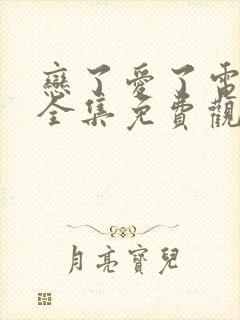 戀了愛了電
全集免費觀
月亮寶兒